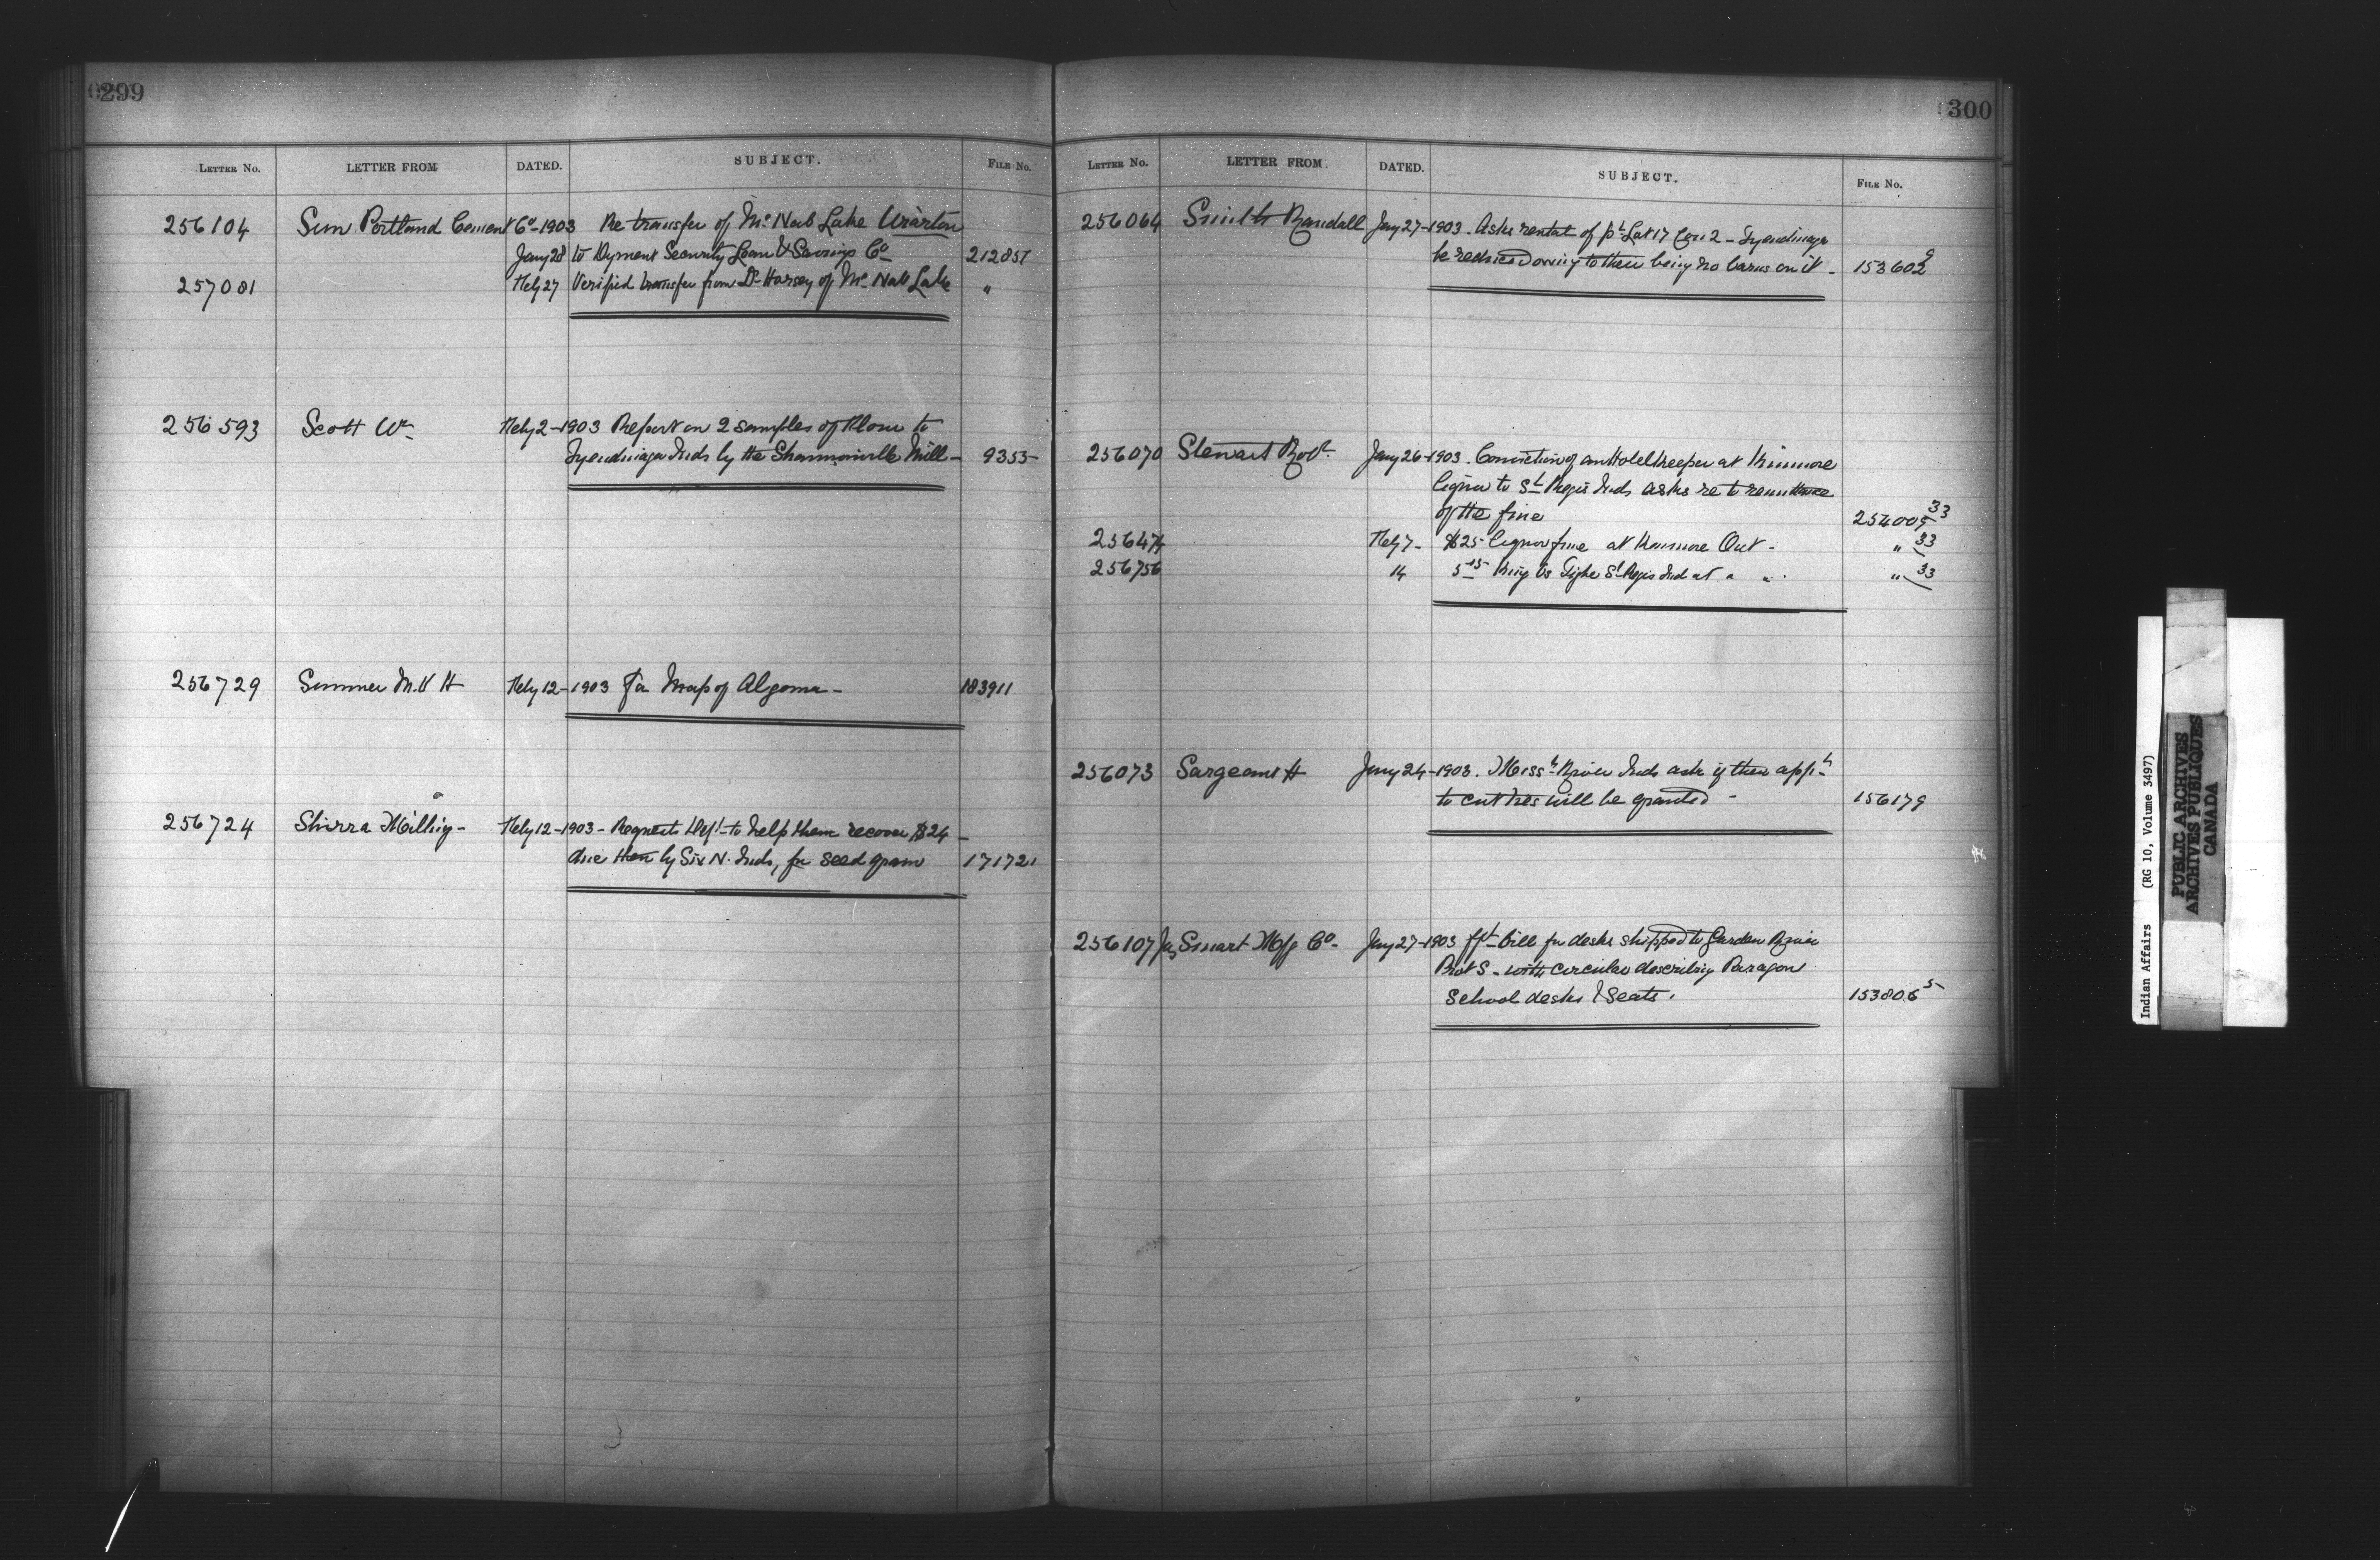 299
LETTER No. LETTER FROM DATED. SUBJECT. FILE No.
256104 Sun Portland Cement Co 1903 Re transfer of Mc Nab Lake Wiarton
Jany 28 to Dyment Security Loan & Savings Co 212857
257081 Feby 27 Verified transfer from Dr Harsey of Mc Nab Lake "
256593 Scott Wm Feby 2 - 1903 Report on 2 samples of Flour to
Tyendinaga Inds by the Shannonville Mill - 9355
256729 Sumner M. V H Feby 12 - 1903 For Map of Algoma - 183911
256724 Shirra Milling - Feby 12 - 1903 - Request Dept to help them recover $24 -
due them by Six N. Inds, for seed grain 171721
300
LETTER No. LETTER FROM. DATED. SUBJECT. FILE No.
256064 Smith Randall Jany 27 - 1903. Asks rental of pt Lot 17 Con 2 - Tyendinaga
be reduced owing to there being no barns on it - 153602 9
256070 Stewart Robt Jany 26 - 1903. Conviction of an Hotel Keeper at
liquor to St Regis Inds asks re to remittance
of the fine 254009 33
256474 Feby 7 - $25 liquor fine at Ont - " 33
256756 14 5 15 King Vs Tighe St Regis Ind at " " " 33
256073 Sargeant H Jany 24 - 1903. River Inds ask if their appn
to cut ties will be granted - 156179
256107 Jas Smart Mfg Co - Jany 27 - 1903 Bill for desks shipped to Garden River
Prot S. with circular describing Paragon
School desks & Seats. 153806 5
Indian Affairs (RG 10, Volume 3497)
PUBLIC ARCHIVES
ARCHIVES PUBLIQUES
CANADA